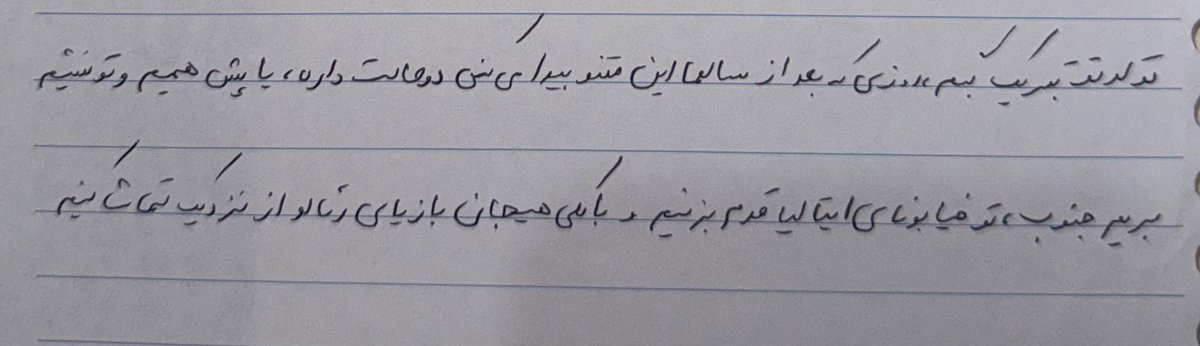 تولدت تبریک بگم، روزی که بعد از سالها این متنو پیدا می کنی دو حالت داره، یا پیش همیم و تونستیم
بریم جنوب، تو خیابونای ایتالیا قدم بزنیم و با کلی هیجان بازیای رئالو از نزدیک تماشا کنیم